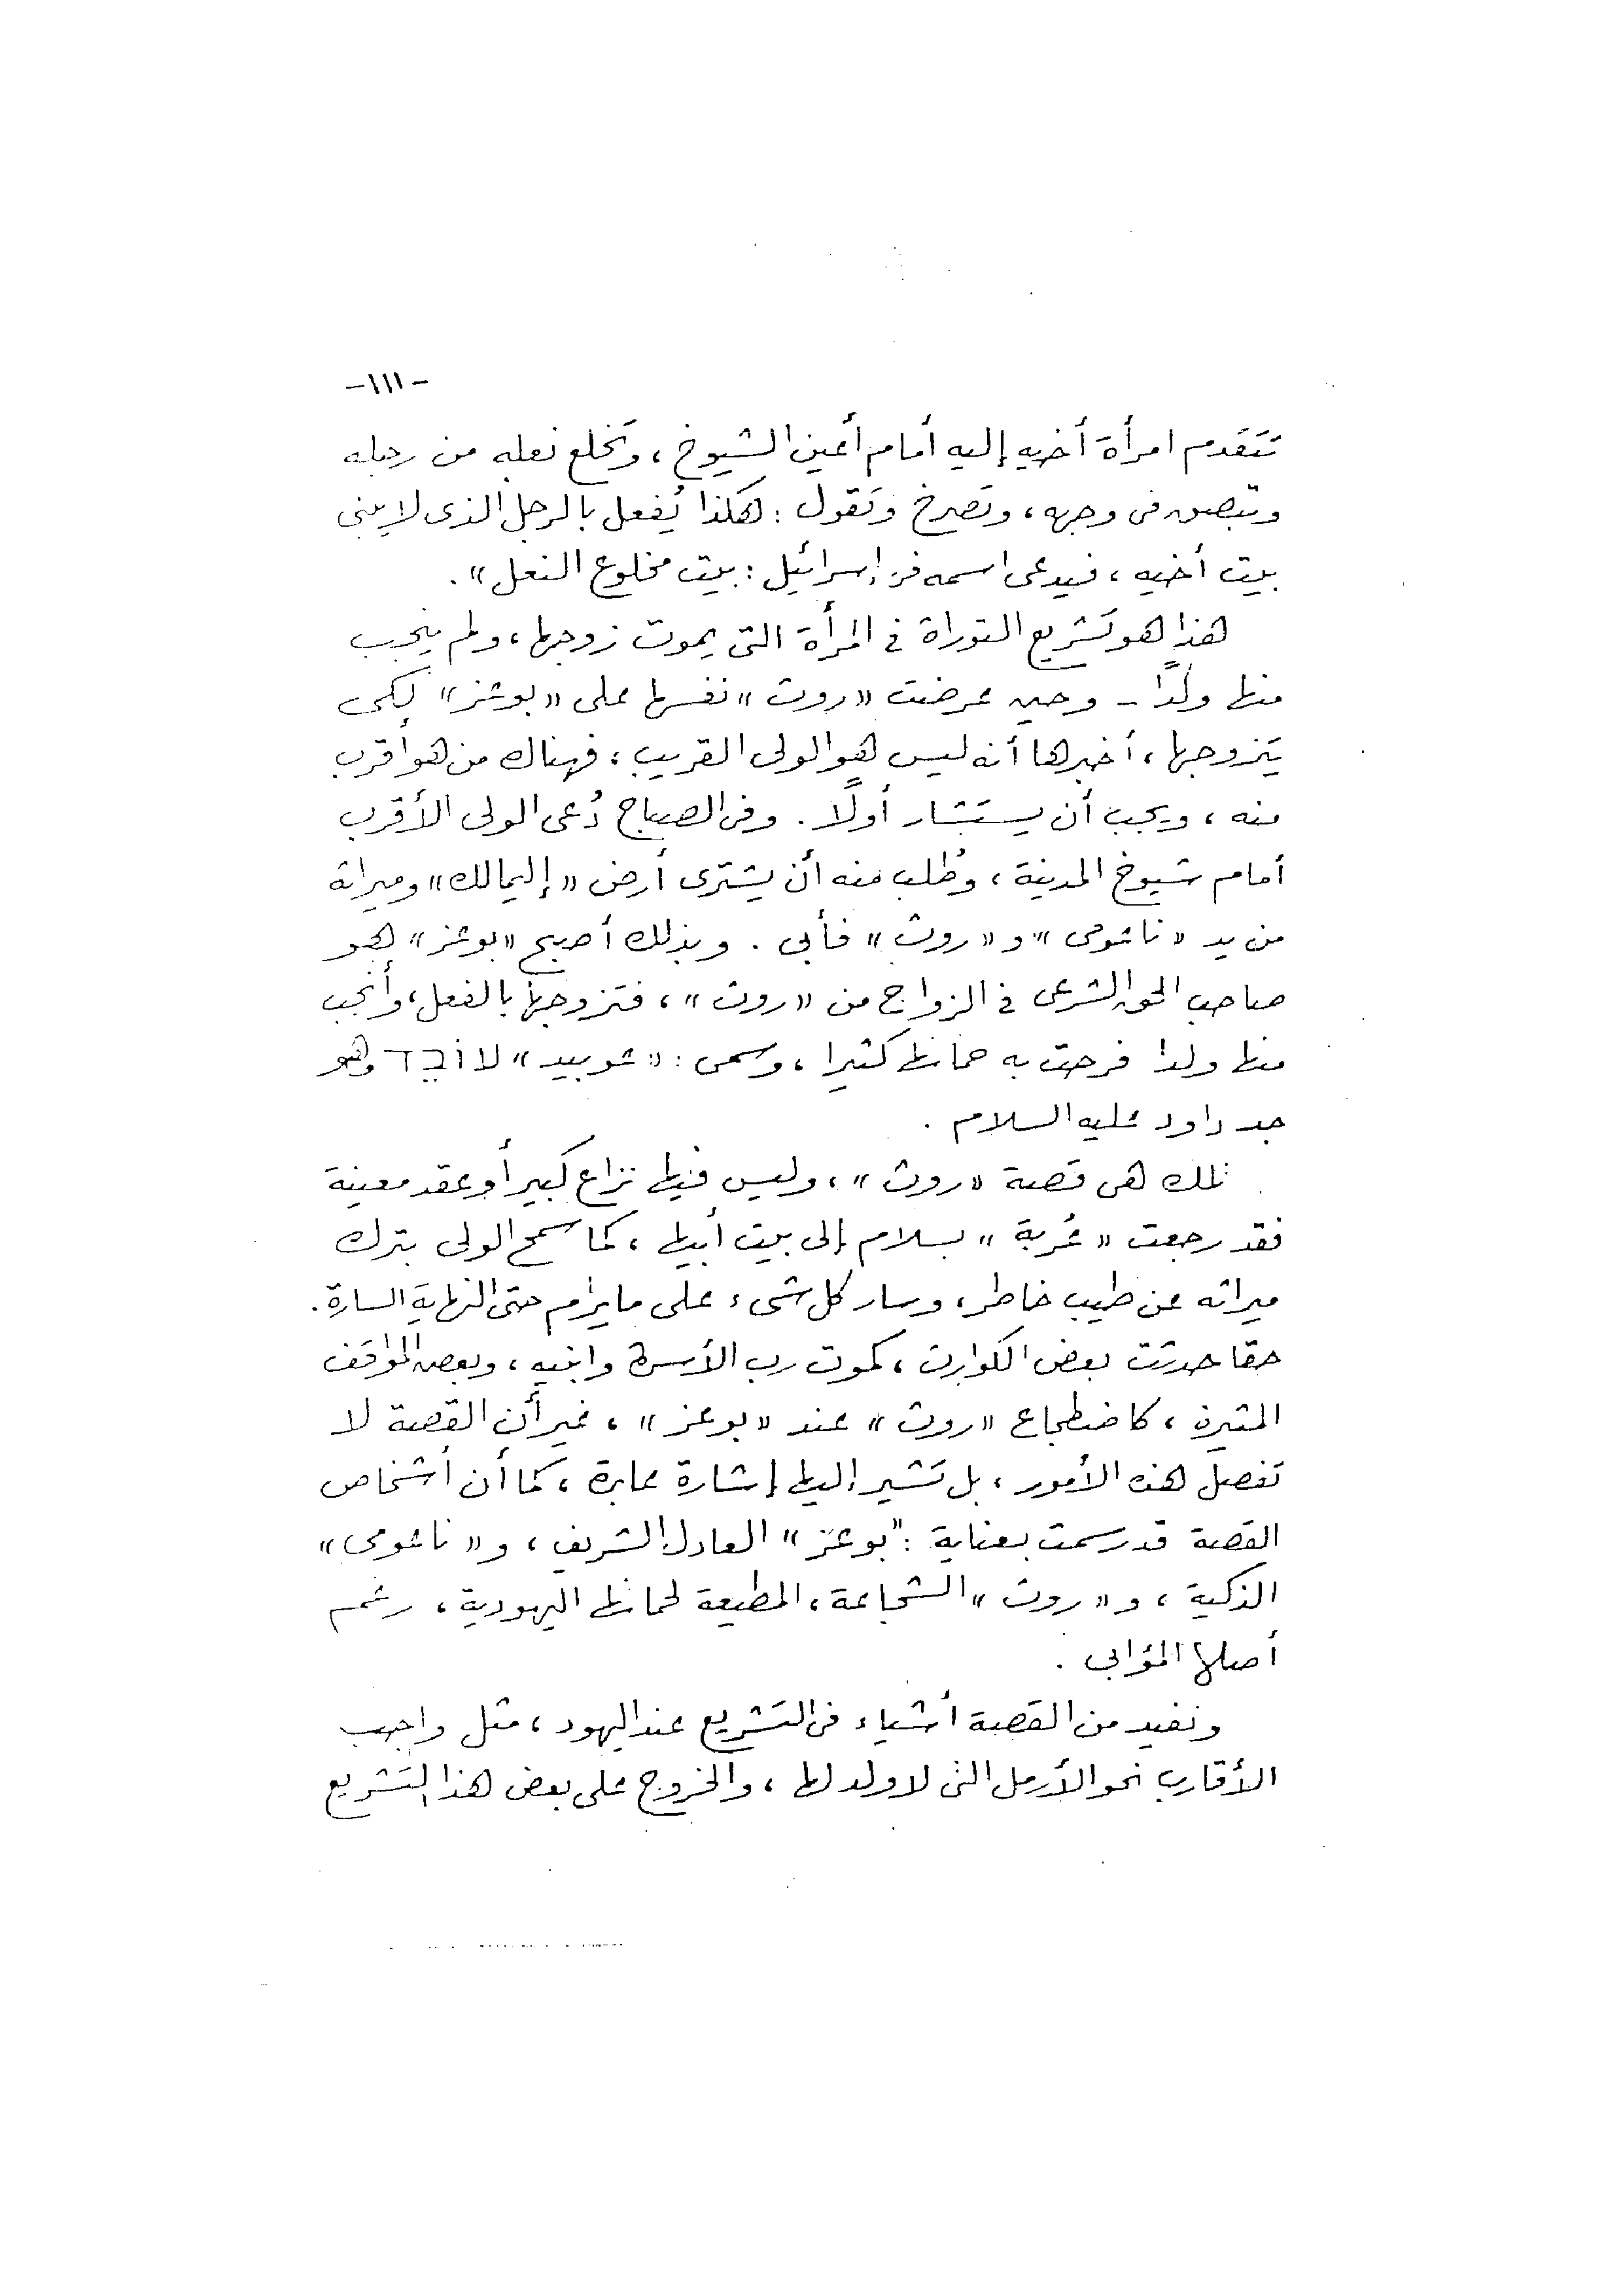 -١١١-
تتقدم امرأة أخيه إليه أمام أعين الشيوخ، وتخلع نعله من رجله
وتبصق فى وجهه، وتصرخ وتقول: هكذا يُفعل بالرجل الذى لا يبنى
بيت أخيه، فيدعى اسمه فى إسرائيل: بيت مخلوع النعل».
هذا هو تشريع التوراة فى المرأة التى يموت زوجها، ولم ينجب
منها ولدًا - وحين عرضت «روث» نفسها على «بوعز» لكى
يتزوجها، أخبرها أنه ليس هو الولى القريب، فهناك من هو أقرب
منه، ويجب أن يستشار أولًا. وفى الصباح دُعى الولى الأقرب
أمام شيوخ المدينة، وطُلب منه أن يشترى أرض «إليمالك» وميراثه
من يد «ناعومى» و«روث» فأبى. وبذلك أصبح «بوعز» هو
صاحب الحق الشرعى فى الزواج من «روث»، فتزوجها بالفعل، وأنجب
منها ولدا فرحت به حماتها كثيرا، وسمى: «عوبيد» עובד وهو
جد داود عليه السلام.
تلك هى قصة «روث»، وليس فيها نزاع كبير أو عقد معينة
فقد رجعت «عُرفة» بسلام إلى بيت أبيها، كما سمح الولى بترك
ميراثه عن طيب خاطر، وسار كل شىء على ما يرام حتى النهاية السارة.
حقا حدثت بعض الكوارث، كموت رب الأسرة وابنيه، وبعض المواقف
المثيرة، كاضطجاع «روث» عند «بوعز»، غير أن القصة لا
تفصل هذه الأمور، بل تشير إليها إشارة عابرة، كما أن أشخاص
القصة قد رسمت بعناية: "بوعز» العادل الشريف، و«ناعومى»
الذكية، و«روث» الشجاعة، المطيعة لحماتها اليهودية، رغم
أصلها المؤابى.
ونفيد من القصة أشياء فى التشريع عند اليهود، مثل واجب
الأقارب نحو الأرمل التى لا ولد لها، والخروج على بعض هذا التشريع